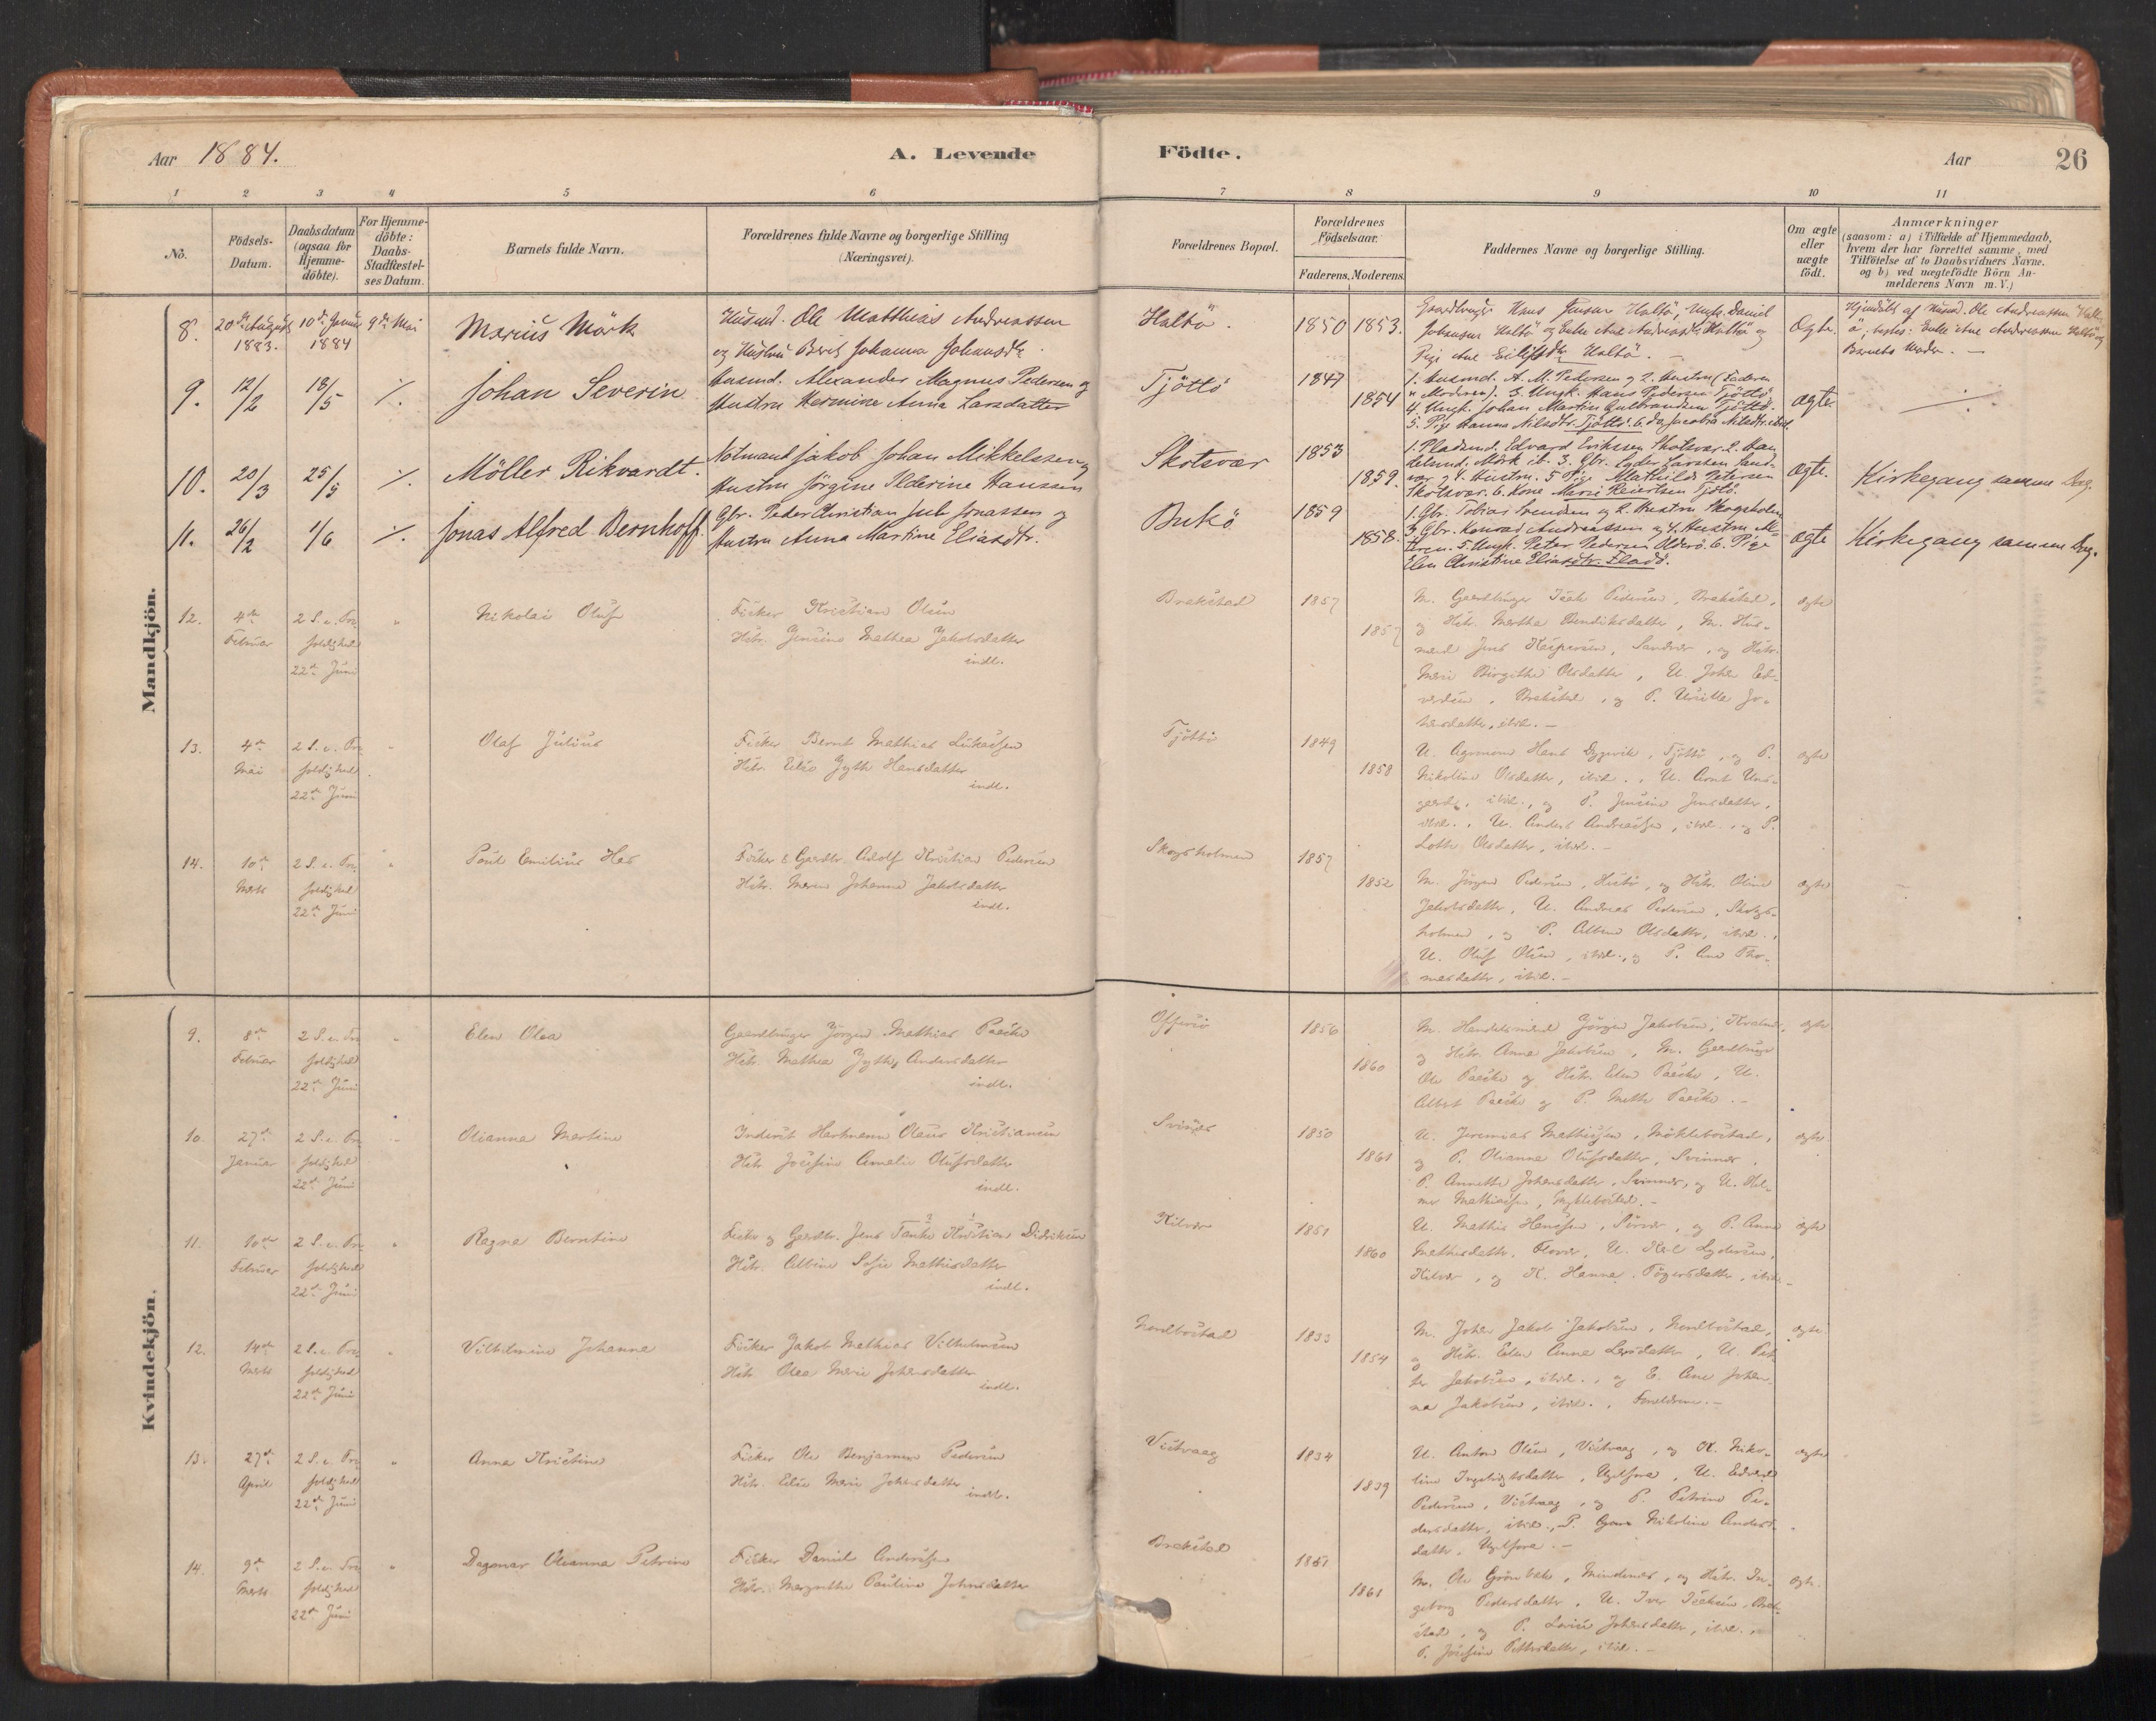 Aar 1884.
A. Levende
Födte.
Aar
26
1 2 3 4 5 6 7 8 9 10 11
No.
Födsels-
Datum.
Daabsdatum
(ogsaa for
Hjemme-
döbte).
For Hjemme-
döbte:
Daabs-
Stadfæstel-
ses Datum.
Barnets fulde Navn.
Forældrenes fulde Navne og borgerlige Stilling
(Næringsvei).
Forældrenes Bopæl.
Forældrenes
Födselsaar.
Faderens.
Moderens.
Faddernes Navne og borgerlige Stilling.
Om ægte
eller
uægte
födt.
Anmærkninger
(saasom: a) i Tilfælde af Hjemmedaab,
hvem der har forrettet samme, med
Tilföielse af to Daabsvidners Navne.
og b) ved uægtefödte Börn An-
melderens Navn m. V.)
Mandkjön.
8.
20de August
1883.
10de Januar
1884
9de Mai
Marius Mörk
Husmd. Ole Matthias Andreassen
og Hustru Berit Johanna Johansdtr.
Haltö.
1850
1853.
Gaardbruger Hans Jensen Haltö, Ungk. Daniel
Johansen Haltö og Enke Ane Andreasdtr. Haltö og
Pige Ane Eilifsdtr Haltö. –
Ægte.
Hjemdöbt af Husmd. Ole Andreassen Halt-
ö, testes: Enke Ane Andreassen Haltö og
Barnets Moder. –
9.
12/2
18/5
./.
Johan Severin
Husmd. Alexander Magnus Pedersen og
Hustru Hermine Anna Larsdatter
Tjöttö
1847
1854
1. Husmd. A. M. Pedersen og 2. Hustru (Faderen
og Moderen). 3. Ungk. Hans Pedersen Tjöttö.
4. Ungk. Johan Martin Gulbrandsen Tjöttö.
5. Pige Hanna Nilsdtr. Tjöttö. 6. do Jacobia Nilsdtr. ibid.
ægte.
./.
10.
20/3
25/5
./.
Möller Rikvardt.
Notmand Jakob Johan Mikkelsen og
Hustru Jörgine Ilderine Hanssen
Skotsvær
1853
1859.
1. Pladsmd. Edvard Eriksen Skotsvær 2. Han
delsmd. Mörk ib. 3. Gbr. Lyder Larssen Sand-
vær og 4. Hustru. 5 Pige Mathilde Petersen
Skotsvær. 6. Kone Marie Reiertsen Tjötö.
ægte.
Kirkegang samme Dag.
11.
26/2
1/6
./.
Jonas Alfred Bernhoff.
Gbr. Peder Christian Juli Jonassen og
Hustru Anna Martine Eliasdtr.
Bukö
1859
1858.
1. Gbr. Tobias Svendsen og 2. Hustru Skogsholm
3. Gbr. Konrad Andreassen og 4. Hustru Al-
steen. 5. Ungk. Peter Pedersen Olderö. 6. Pige
Elen Christine Eliasdtr. Fladö.
ægte
Kirkegang samme Dag.
12.
4de
Februar
2 S. e. Tre
foldighed
22de Juni
"
Nikolai Oluf
Fisker Kristian Olsen
Hstr. Jensine Mathea Jakobsdatter
indl.
Brekstad
1857
1857
M. Gaardbruger Isak Pedersen, Brekstad,
og Hstr. Martha Bendiksdatter, M. Hus-
mand Jens Kaspersen, Sandvær, og Hstr.
Maria Birgithe Olsdatter, U. Johan Ed-
vardsen, Brekstad, og P. Ursille Jo-
hansdatter, ibid. –
ægte
13.
4de
Mai
2 S. e. Tre
foldighed
22de Juni
"
Olaf Julius
Fisker Bernt Mathias Lukassen
Hstr. Elise Jyth Hansdatter
indl.
Tjöttö
1849
1858
U. Agronom Hans Dypvik, Tjöttö, og P.
Nikoline Olsdatter, ibid., U. Arnt Uns-
gaard, ibid., og P. Jensine Jensdatter,
ibid., U. Anders Andreassen, ibid., og P.
Lotte Olsdatter, ibid. –
ægte
14.
10de
Marts
2 S. e. Tre
foldighed
22de Juni
"
Poul Emilius Hes
Fisker & Gaardbr. Adolf Kristian Pedersen
Hstr. Maren Johanna Jakobsdatter
indl.
Skogsholmen
1857
1852
M. Jörgen Pedersen, Husby, og Hstr. Oline
Jakobsdatter, U. Andreas Pedersen, Skogs-
holmen, og P. Albine Olsdatter, ibid.,
U. Oluf Olsen, ibid., og P. Ane Tho-
masdatter, ibid. –
ægte
Kvindekjön.
9.
8de
Februar
2 S. e. Tre
foldighed
22de Juni
"
Elen Olea
Gaardbruger Jörgen Mathias Paaske
Hstr. Mathea Jyth Andersdatter
indl.
Offersö
1856
1860
M. Handelsmand Jörgen Jakobsen,
og Hstr. Anna Jakobsen, M. Gaardbruger
Ole Paaske og Hstr. Elen Paaske, U.
Albert Paaske og P. Mette Paaske. –
ægte
10.
27de
Januar
2 S. e. Tre
foldighed
22de Juni
Olianna Martine
Inderst Hartmann Olaus Kristiansen
Hstr. Josefine Amalie Olufsdatter
indl.
Svinnes
1850
1861
U. Jeremias Mathisen, Möklebostad,
og P. Olianna Olufsdatter, Svinnes,
P. Annette Johansdatter, Svinnes, og U. Hel-
mer Mathiasen, Myklebostad. –
ægte
11.
10de
Februar
2 S. e. Tre
foldighed
22de Juni
"
Ragna Berntine
Fisker og Gaardbr. Jens Tanke Kristian Didriksen
Hstr. Albine Sofie Mathisdatter
indl.
Kilvær
1851
1860
U. Mathis Hansen, og P. Anna
Mathisdatter, Flovær, U. Karl Lydersen,
Kilvær, og K. Hanna Tögersdatter, ibid. –
ægte
12.
14de
Marts
2 S. e. Tre
foldighed
22de Juni
"
Vilhelmine Johanna
Fisker Jakob Mathias Vilhelmsen
Hstr. Olea Marie Johansdatter
indl.
Nordbostad
1833
1854
M. Johan Jakob Jakobsen, Nordbostad,
og Hstr. Elen Anna Larsdatter, U. Pet-
ter Jakobsen, ibid., og E. Ane Johan-
na Jakobsen, ibid., Forældrene. –
ægte
13.
27de
April
2 S. e. Tre
foldighed
22de Juni
"
Anna Kristine
Fisker Ole Benjamin Pedersen
Hstr. Elise Marie Johansdatter
indl.
Vistvaag
1834
1839
U. Anton Olsen, Vistvaag, og K. Niko-
line Ingebrigtsdatter, U. Edvard
Pedersen, Vistvaag, og P. Petrine Pe-
dersdatter, ibid., P. Nikoline Anders-
datter, –
ægte
14.
9de
Marts
2 S. e. Tre
foldighed
22de Juni
"
Dagmar Olianna Petrine
Fisker Daniel Andersen
Hstr. Margrethe Pauline Johnsdatter
Brekstad
1851
1861
M. Ole Grönbek, Mindnes, og Hstr. In-
geborg Pedersdatter, U. Iver Isaksen, Brek-
stad, og P. Lovise Johansdatter, ibid.,
P. Josefine Pettersdatter, ibid. –
ægte.